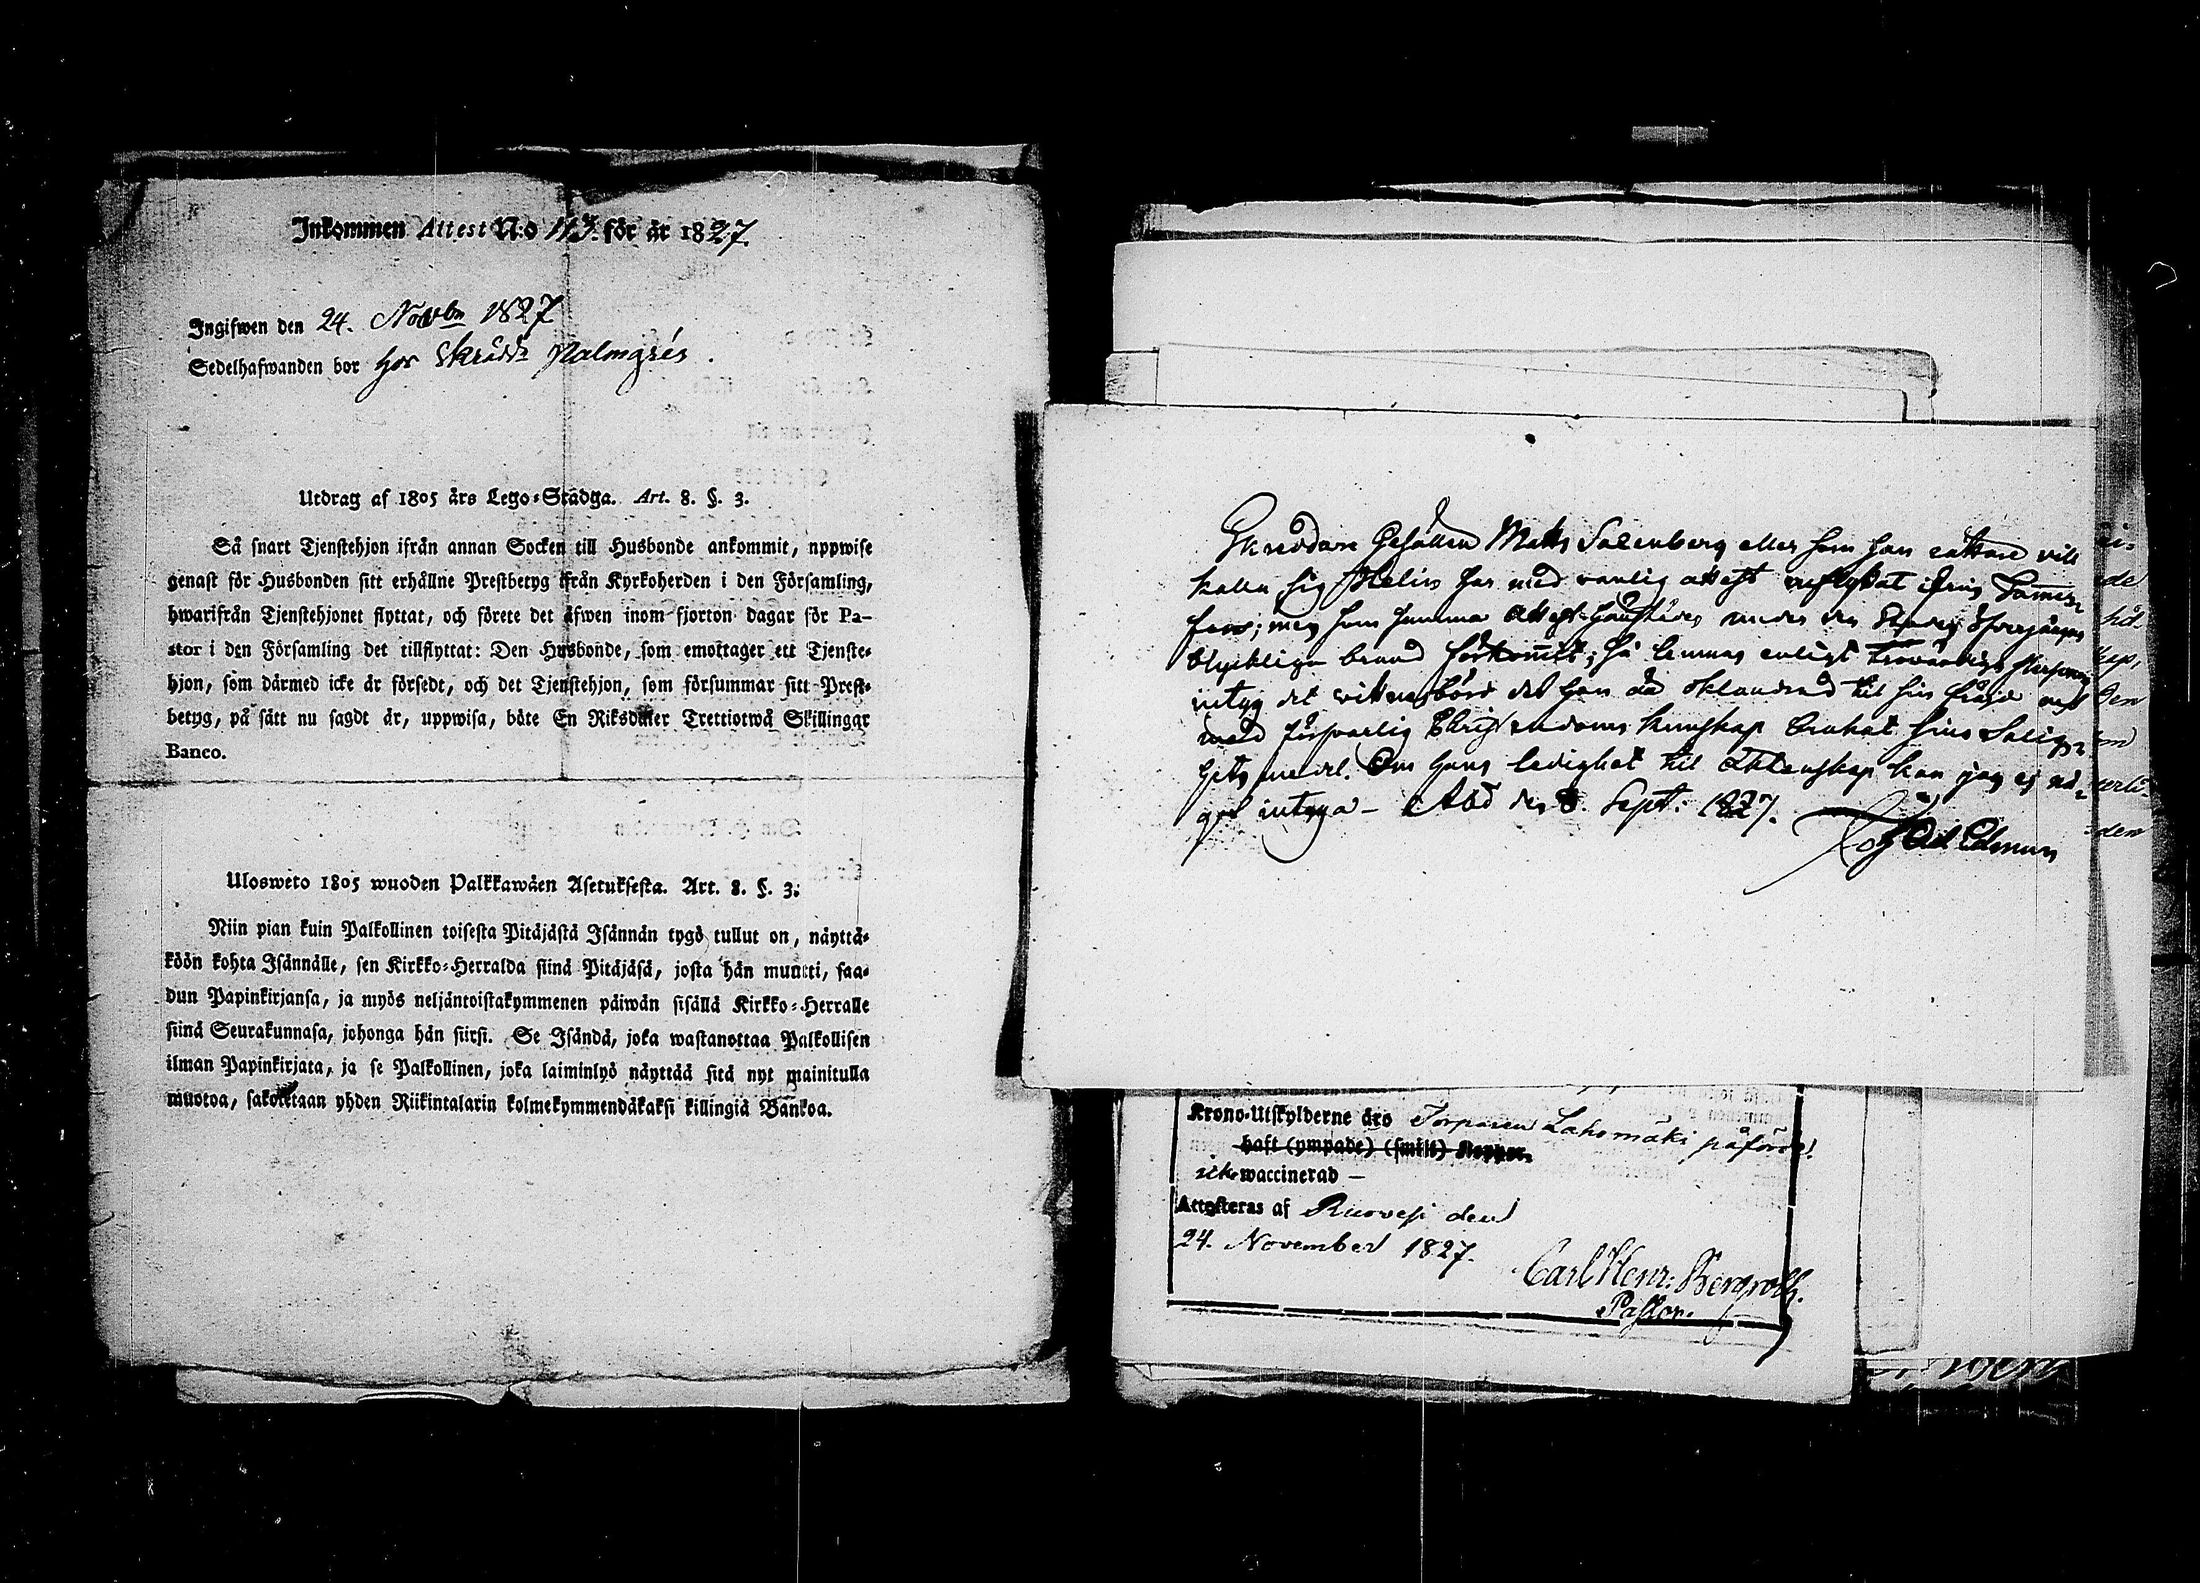 Inkommen Attest N:o 113. för år 1827.
Ingifwen den 24. Novbr 1827
Sedelhafwanden bor hos Skrädd: Palmgrés.
Utdrag af 1805 års Lego-Stadga. Art. 8. §. 3.
Så snart Tjenstehjon ifrån annan Socken till Husbonde ankommit, uppwise
genast för Husbonden sitt erhållne Prestbetyg ifrån Kyrkoherden i den Församling,
hwarifrån Tjenstehjonet flyttat, och förete det äfwen inom fjorton dagar för Pa-
stor i den Församling det tillflyttat: Den Husbonde, som emottager ett Tjenste-
hjon, som därmed icke är försedt, och det Tjenstehjon, som försummar sitt Prest-
betyg, på sätt nu sagdt är, uppwisa, böte En Riksdaler Trettiotwå Skillingar
Banco.
Ulosweto 1805 wuoden Palkkawäen Asetuksesta. Art. 8. §. 3.
Niin pian kuin Palkollinen toisesta Pitäjästä Isännän tygö tullut on, näyttä-
köön kohta Isännälle, sen Kirkko-Herralda siinä Pitäjäsä, josta hän muutti, saa-
dun Papinkirjansa, ja myös neljäntoistakymmenen päiwän sisällä Kirkko-Herralle
siinä Seurakunnasa, johonga hän siirsi. Se Isändä, joka wastanottaa Palkollisen
ilman Papinkirjata, ja se Palkollinen, joka laiminlyö näyttää sitä nyt mainitulla
muotoa, sakotetaan yhden Riikintalarin kolmekymmendäkaksi killingiä Bankoa.
Skreddare Gesällen Matts Salenberg eller som han rättare vill
kalla sig Helin har med vanlig attest inflyttat ifrån
men som samma attest under den
olyckliga brand förkommit; så lemnas enligt trovärdige Personers
intyg det witnesbörd det han är oklandrad til sin frägd och
med försvarlig Christendoms kunskap brukat sina Salig-
hets medel. Om hans ledighet til Ektenskap kan jag ej nå-
got intyga – Åbo den 8. Sept: 1827.
Krono-Utskylderne äro Torparen Lahomäki påförde.
haft (ympade) (smitt) Koppor.
icke waccinerad –
Attesteras af Ruovesi den
24. November 1827.
Carl Henr: Bergroth.
Pastor.